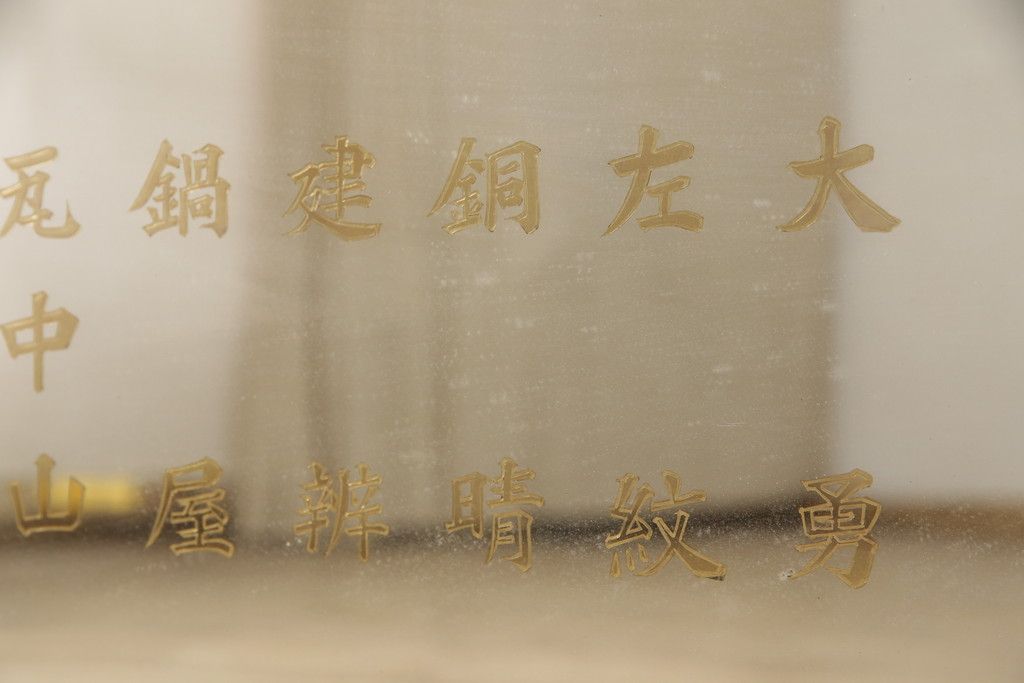 大勇
左紋
銅晴
建辨
鍋屋
瓦中山